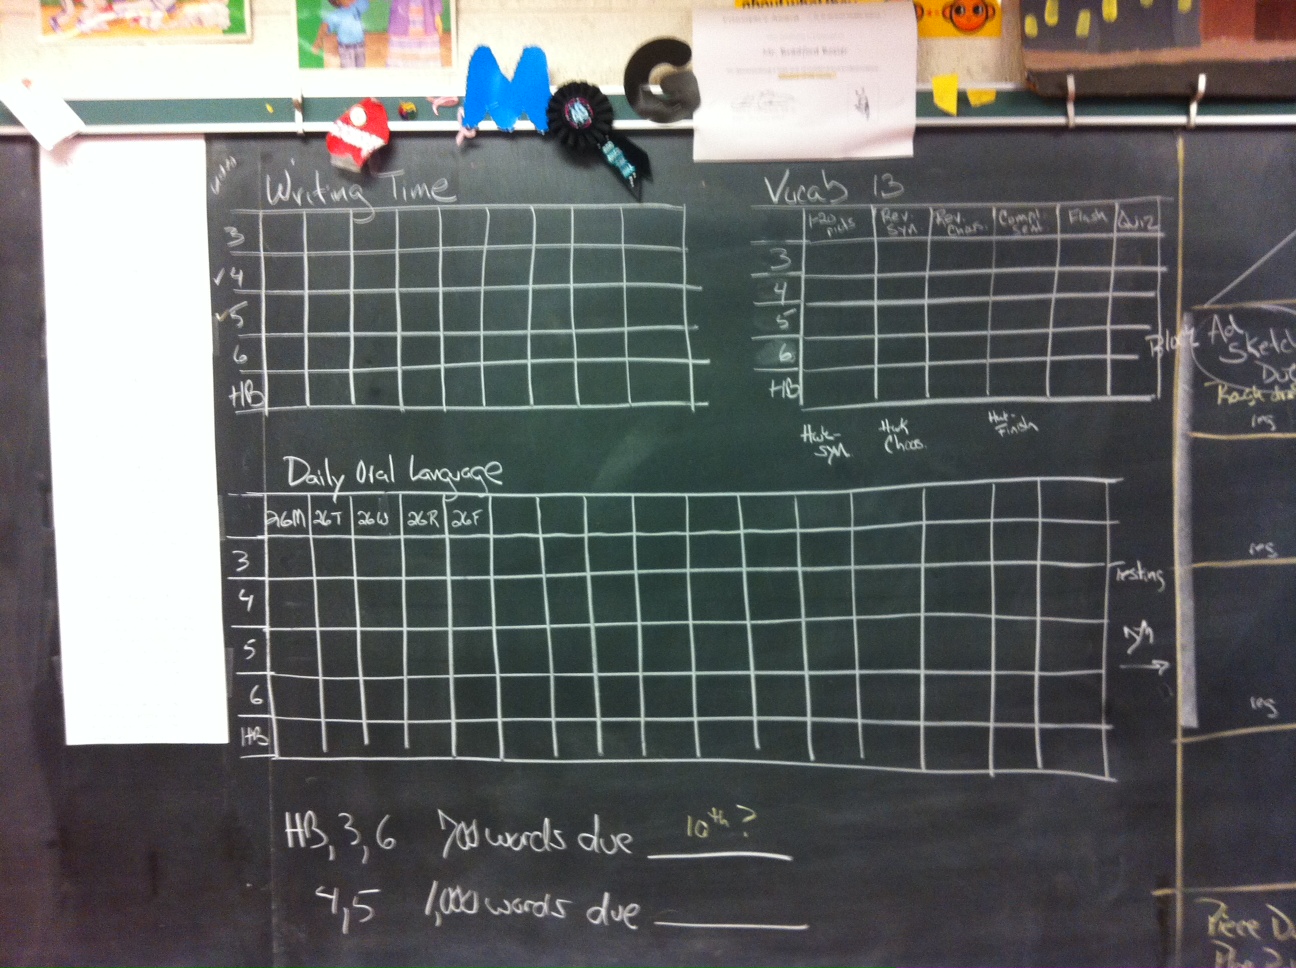 about what they
Writing Time
3
4
5
6
HB
Vocab 13
1-20 picts Rev. Syn. Rev. Choos. Compl. Sent. Flash Quiz
3
4
5
6
HB
Hwk- Syn.
Hwk Choos.
Hwk- Finish
Daily Oral Language
26M 26T 26W 26R 26F
3
4
5
6
HB
Testing
HB, 3, 6 700 words due 10th?
4, 5 1,000 words due
Block
Ad
Sketch
Due
Rough
ing
ing
ing
Piece